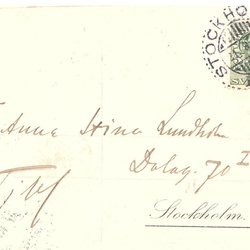 STOCKHO
SV
Anna Stina Lundholm
Dalag. 70 I
Stockholm.